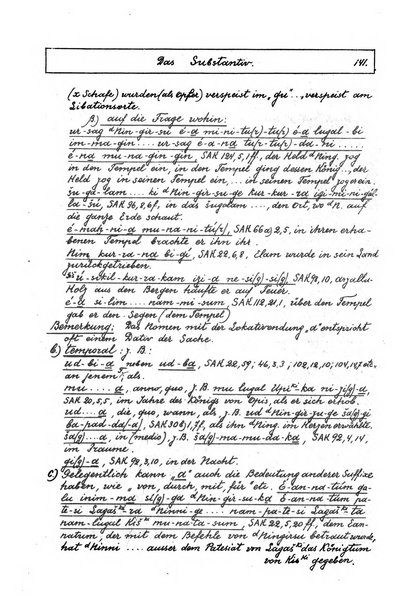 Das Substantiv. 141.
(x Schafe) wurden (als Opfer) verspeist im „gú"..., verspeist am
Libationsorte.
β) auf die Frage wohin:
ur-sag ᵈNin-gír-su é-a mi-ni-tu(r)-tu(r) é-a lugal-bi
im-ma-gin.... ur-sag é-a-na tu(r)-tu(r)-da-ni.....
é-na mu-na-gin-gin, SAK 124,5,1ff, der Held ᵈNing. zog
in den Tempel ein, in den Tempel ging dessen König..., der
Held zog in seinen Tempel ein,... in seinen Tempel zog er ein.
šu-ga-lam.... ki ᵈNin-gír-su-ge kur-kur-ra
SAK 96,8,6f, in das šugalam...., den Ort, wo ᵈN. auf
die ganze Erde schaut.
é-mah-ni-a mu-na-ni-tú(r), SAK 66a) 2,5, in ihren erha-
benen Tempel brachte er ihn ihr.
Nim kur-ra-na bi-gi, SAK 22,6,8, Elam wurde in sein Land
zurückgetrieben.
kur-ra-kam izi-a ne-si(g)-si(g), SAK 98,10,
Holz aus den Bergen häufte er auf Feuer.
é-d si-lim.... nam-mi-sum, SAK 112,21,1, über den Tempel
gab er den Segen (dem Tempel)
Bemerkung: Das Nomen mit der Lokativendung „a" entspricht
oft einem Dativ der Sache.
b) temporal: z.B.
ud-bi-a neben ud-ba, SAK 22,59; 46,3,3; 102,12,10; 104,147 etc.
an jenem T, als.
mu.....a, anno, quo, z.B. mu lugal ni-zi(g)-a,
SAK 20,5,5, im Jahre des Königs von Opis, als er sich erhob.
ud....a, die, quo, wann, als, z.B. ud ᵈNin-gír-zu-ge šà(g)-gi
ba-pad-da(-a), SAK 30b) 1,7f, als ihn ᵈNin. im Herzen erwählte.
šà(g)....a, in (medio), z.B. šà(g)-ma-mu-da-ka, SAK 92,4,14,
im Traume.
gi(g)-a, SAK 92,3,10, in der Nacht.
c) Gelegentlich kann „a" auch die Bedeutung anderer Suffixe
haben, wie „von, durch, mit, für" etc. É-an-na-túm ga-
lu inim-ma si(g)-ga ᵈNin-gír-su-ka É-an-na-túm pa-
te-si Lagaš-ra ᵈNinni-ge.... nam-pa-te-si Lagaš-ta
nam-lugal Kiš mu-na-ta-sum, SAK 22,5,20ff, dem Ean-
natum, der mit dem Befehle von ᵈNingirsu betraut wurde,
hat ᵈNinni..... ausser dem Patesiat von Lagaš das Königtum
von Kiš gegeben.